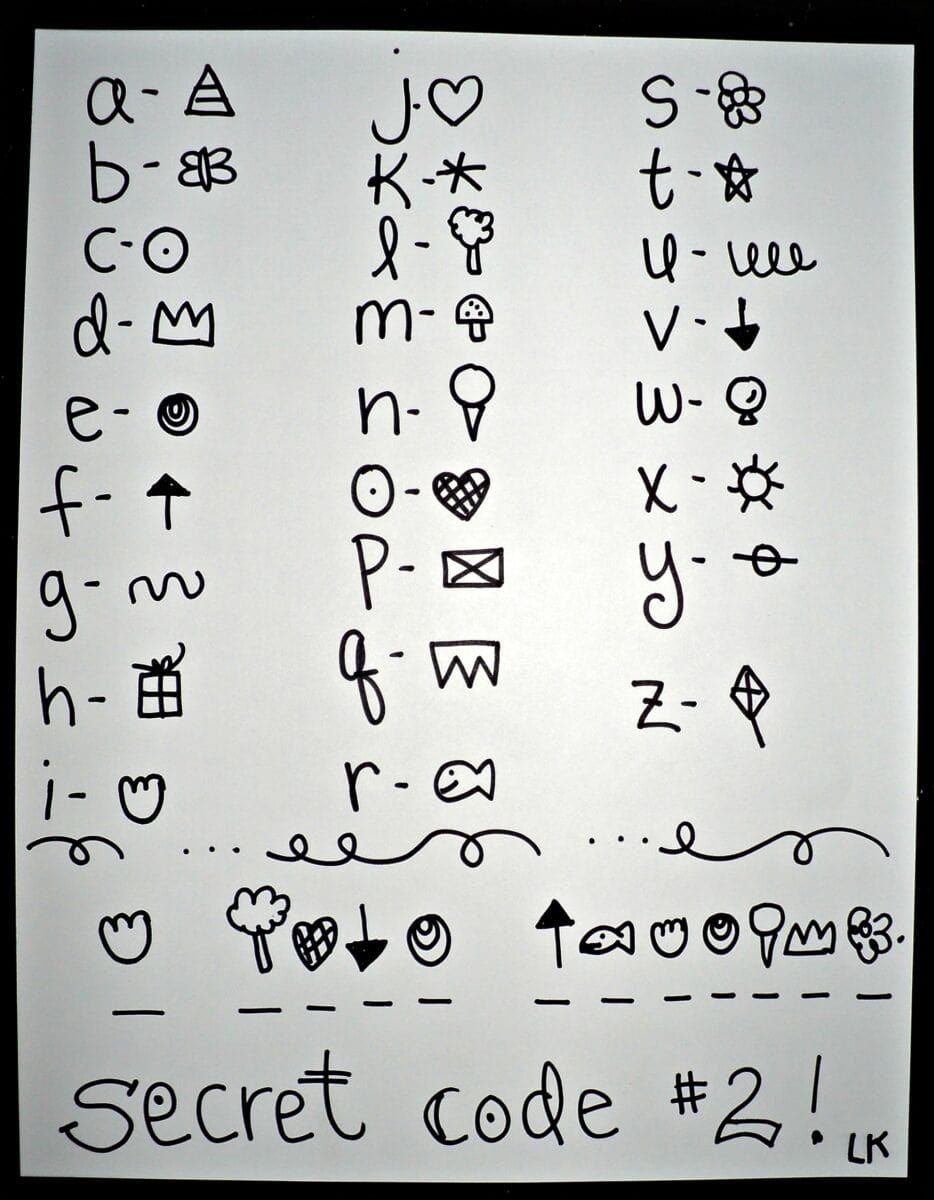 a-
b-
c-
d-
e-
f-
g-
h-
i-
j-
k-
l-
m-
n-
o-
p-
q-
r-
s-
t-
u-
v-
w-
x-
y-
z-
secret code #2!
LK